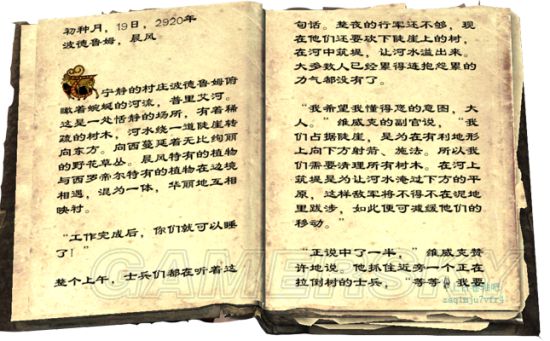 初种月，19日，2920年
波德鲁姆，晨风
宁静的村庄波德鲁姆俯
瞰着蜿蜒的河流，普里艾河。
这是一处恬静的场所，有着稀
疏的树木，河水绕一道陡崖转
向东方。向西蔓延着无比绚丽
的野花草丛。晨风特有的植物
与西罗帝尔特有的植物在边境
相遇，混为一体，华丽地互相
映衬。
“工作完成后，你们就可以睡
了！”
整个上午，士兵们都在听着这
句话。整夜的行军还不够，现
在他们还要砍下陡崖上的树，
在河中筑堤，让河水溢出来。
大多数人已经累得连抱怨累的
力气都没有了。
“我希望我懂得您的意图，大
人。”维威克的副官说，“我
们占据陡崖，是为在有利地形
上向下方射箭、施法。所以我
们需要清理所有树木。在河上
筑堤是为让河水淹过下方的平
原，这样敌军将不得不在泥地
里跋涉，如此便可减缓他们的
移动。”
“正说中了一半，”维威克赞
许地说。他抓住近旁一个正在
拉倒树的士兵，“等等，我要
GAMERSKY
zaq1mju7vfr4